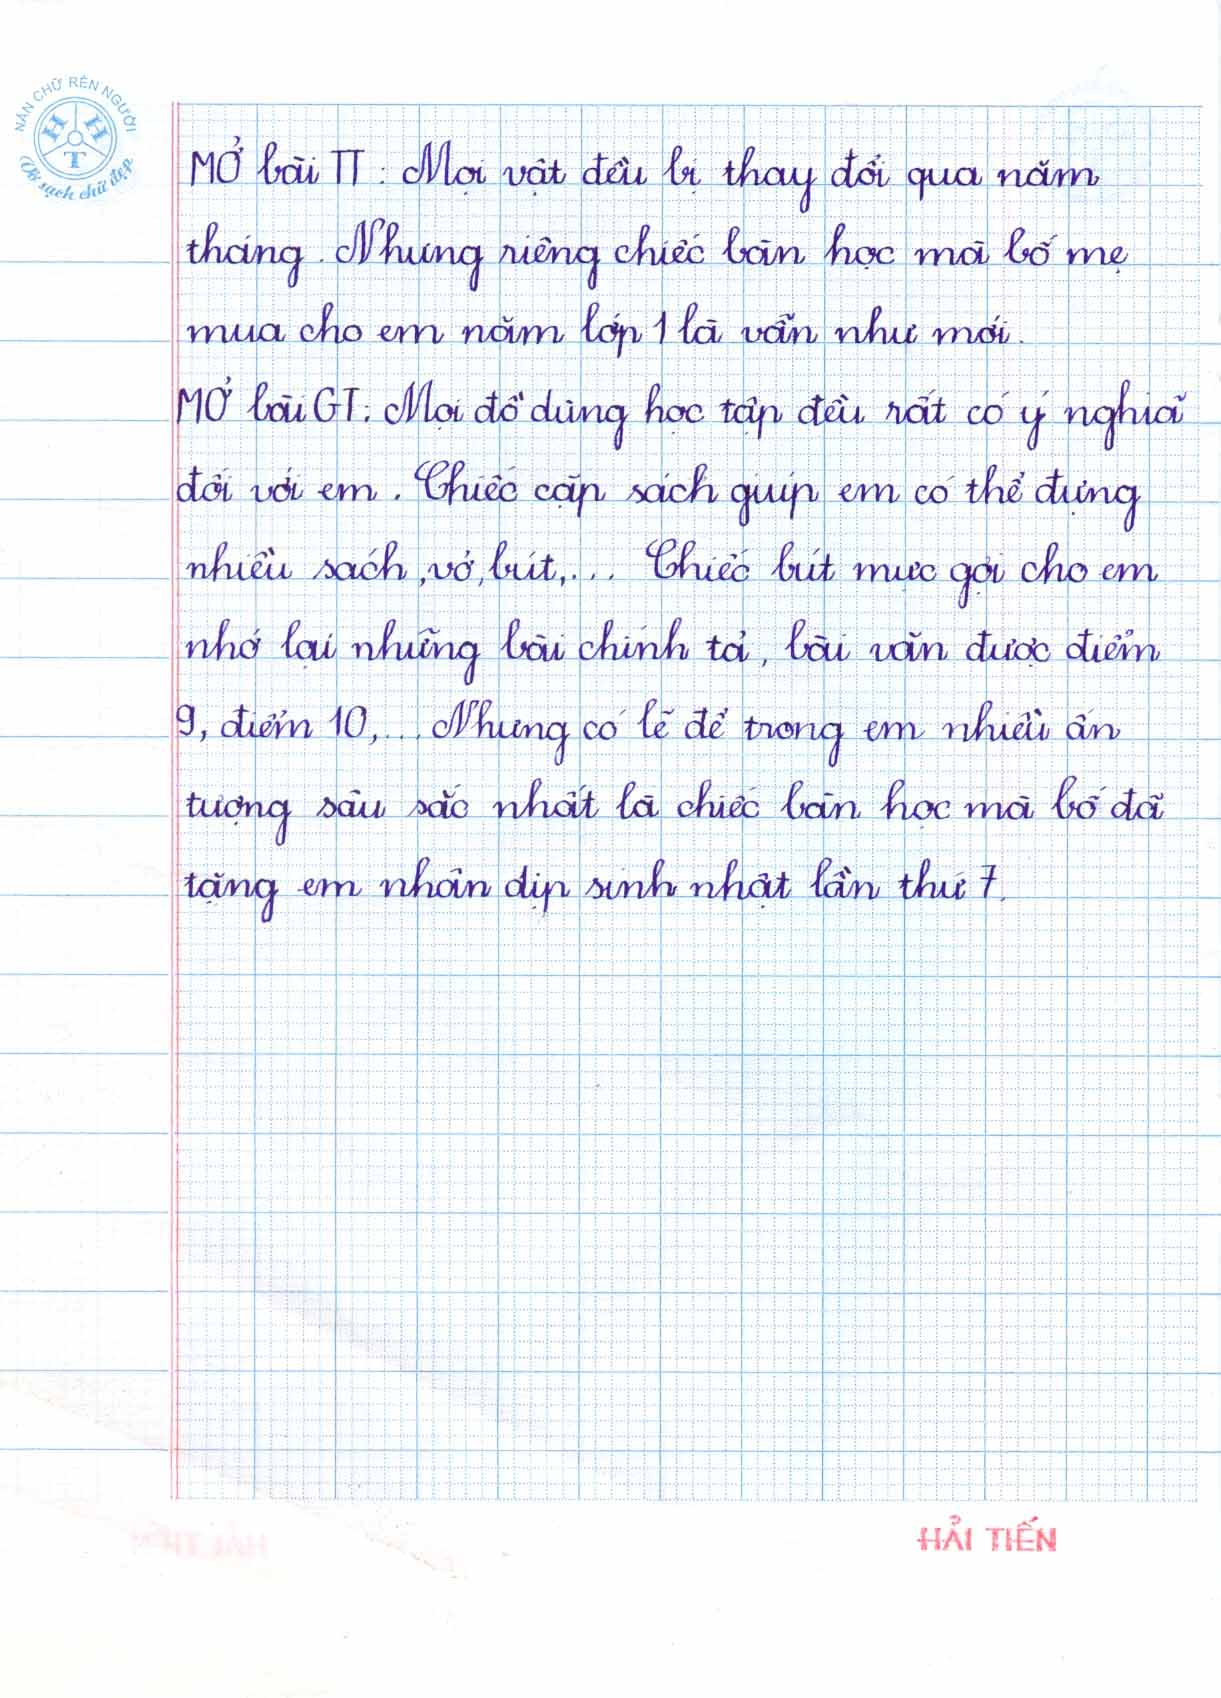 NẮN CHỮ RÈN NGƯỜI
H H T
Vở sạch chữ đẹp
MỞ bài TT : Mọi vật đều bị thay đổi qua năm
tháng. Nhưng riêng chiếc bàn học mà bố mẹ
mua cho em năm lớp 1 là vẫn như mới.
MỞ bài GT: Mọi đồ dùng học tập đều rất có ý nghĩa
đối với em. Chiếc cặp sách giúp em có thể đựng
nhiều sách, vở, bút,... Chiếc bút mực gợi cho em
nhớ lại những bài chính tả, bài văn được điểm
9, điểm 10,... Nhưng có lẽ để trong em nhiều ấn
tượng sâu sắc nhất là chiếc bàn học mà bố đã
tặng em nhân dịp sinh nhật lần thứ 7.
HẢI TIẾN